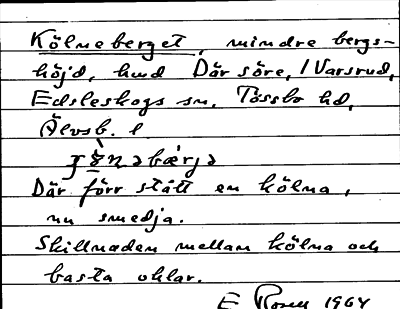 Kölneberget, mindre bergs-
höjd, hmd Där söre, i Varsrud,
Edsleskogs sn, Tössbo hd,
Älvsb. l
Där förr stått en kölna,
nu smedja.
Skillnaden mellan kölna och
basta oklar.
E Rosell 1964